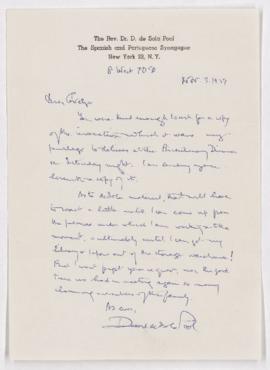 The Rev. Dr. D. de Sola Pool
The Spanish and Portuguese Synagogue
New York 23, N. Y.
8 West 70 St
Dear Evelyn
You were kind enough to ask for a copy
of the invocation which it was my
privilege to deliver at the Dinner
on Saturday night. I am sending you
herewith a copy of it.
As to material, that will have
to wait a little until I can come up from
the under which I am working at the
moment, & ultimately until I can get my
library & papers out of the storage warehouse!
But I won't forget your request, nor the good
time we had in meeting again so many
charming members of the family.
As ever,
David de Sola Pool